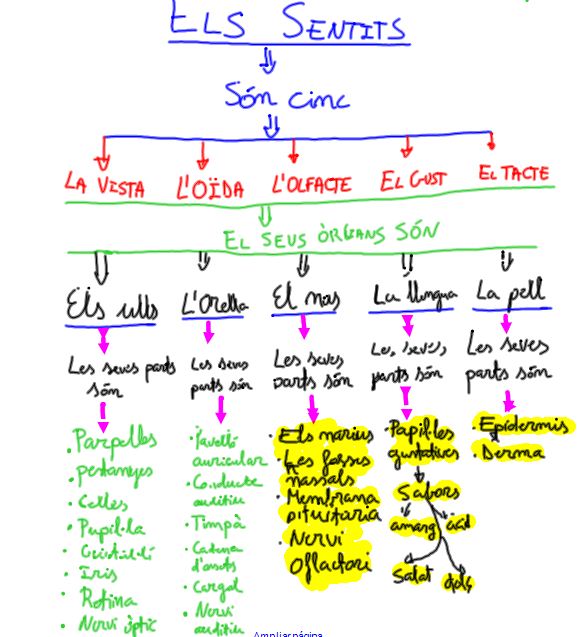 ELS SENTITS
Són cinc
LA VISTA
L'OÏDA
L'OLFACTE
EL GUST
EL TACTE
EL SEUS ÒRGANS SÓN
Els ulls
L'Orella
El nas
La llengua
La pell
Les seves parts
són
Les seves
parts són
Les seves
parts són
Les, seves,
parts són
Les seves
parts són
Parpelles
pestanyes
Celles
Pupil·la
Cristal·lí
Iris
Retina
Nervi òptic
Pavelló
auricular
Conducte
auditiu
Timpà
Cadena
d'ossets
Cargol
Nervi
auditiu
Els narius
Les fosses
nassals
Membrana
pituitària
Nervi
Olfactori
Papil·les
gustatives
Sabors
amarg
àcid
Salat
dolç
Epidermis
Derma
Ampliar página